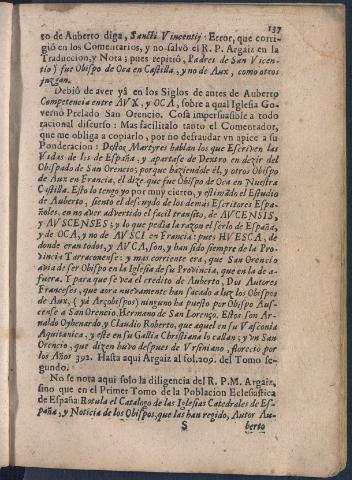 137
to de Auberto diga, Sancti Vincentij: Error, que corri-
giò en los Comentarios, y no salvò el R. P. Argaiz en la
Traduccion, y Nota; pues repitiò, Padres de San Vicen-
tio q̃ fue Obispo de Oca en Castilla, y no de Aux, como otros
juzgan.
Debiò de aver yà en los Siglos de antes de Auberto
Competencia entre AVX, y OCA, sobre a qual Iglesia Go-
vernò Prelado San Orencio. Cosa impersuasible a todo
racional discurso: Mas facilitalo tanto el Comentador,
que me obliga a copiarlo, por no defraudar vn apice a su
Ponderacion: Destos Martyres hablan los que Escriven las
Vidas de los de España, y apartase de Dextro en dezir del
Obispado de San Orencio; porque haziendole èl, y otros Obispo
de Aux en Francia, el dize que fue Obispo de Oca en Nuestra
Castilla. Esto lo tengo yo por muy cierto, y estimãdo el Estudio
de Auberto, siento el descuydo de los demàs Escritores Espa-
ñoles, en no aver advertido el facil transito, de AVCENSIS,
y AVSCENSES; y lo que pedia la razon el serlo de España,
y de OCA, y no de AVSCI en Francia: pues HVESCA, de
donde eran todos, y AVCA, son, y han sido siempre de la Pro-
vincia Tarraconense: y mas corriente era, que San Orencio
avia de ser Obispo en la Iglesia de su Provincia, que en la de a-
fuera. Y para que se vea el credito de Auberto, Dos Autores
Franceses, que aora nuevamente han sacado a luz los Obispos
de Aux, (y yà Arçobispos) ninguno ha puesto por Obispo Aus-
cense a San Orencio, Hermano de San Lorenzo. Estos son Ar-
naldo Oyhenardo, y Claudio Roberto, que aquel en su Vasconia
Aquitanica, y este en su Gallia Christiana lo callan; y vn San
Orencio, que dizen huvo despues de Vrsiniano, floreciò por
los Años 392. Hasta aqui Argaiz al fol. 209. del Tomo se-
gundo.
No se nota aqui solo la diligencia del R. P. M. Argaiz,
sino que en el Primer Tomo de la Poblacion Eclesiastica
de España: Rotula el Catalogo de las Iglesias Catedrales de Es-
paña, y Noticia de los Obispos, que las han regido, Autor Au-
S berto